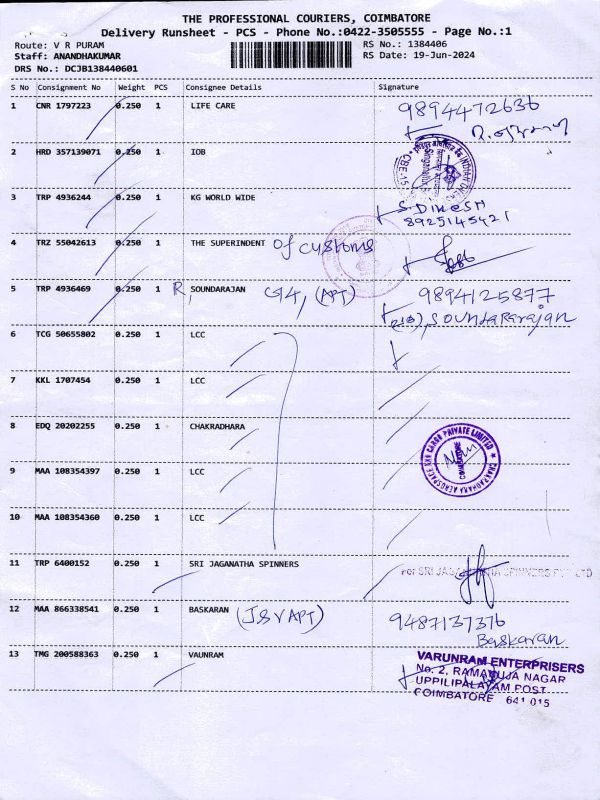 THE PROFESSIONAL COURIERS, COIMBATORE
Delivery Runsheet - PCS - Phone No.:0422-3505555 - Page No.:1
Route: V R PURAM RS No.: 1384406
Staff: ANANDHAKUMAR RS Date: 19-Jun-2024
DRS No.: DCJB138440601
S No Consignment No Weight PCS Consignee Details Signature
1 CNR 1797223 0.250 1 LIFE CARE 9894472636
2 HRD 357139071 0.250 1 IOB
3 TRP 4936244 0.250 1 KG WORLD WIDE S. DINESH
8925145421
4 TRZ 55042613 0.250 1 THE SUPERINDENT of customs
5 TRP 4936469 0.250 1 R, SOUNDARAJAN G4, (APT) 9894125877
Soundararajan
6 TCG 50655802 0.250 1 LCC
7 KKL 1707454 0.250 1 LCC
8 EDQ 20202255 0.250 1 CHAKRADHARA
CHAKRADHARA AEROSPACE AND CARGO PRIVATE LIMITED
COIMBATORE
9 MAA 108354397 0.250 1 LCC
10 MAA 108354360 0.250 1 LCC
11 TRP 6400152 0.250 1 SRI JAGANATHA SPINNERS For SRI JAGANNATHA SPINNERS PVT LTD
12 MAA 866338541 0.250 1 BASKARAN (JSV APT) 9487137376
Baskaran
13 TMG 200588363 0.250 1 VAUNRAM VARUNRAM ENTERPRISERS
No. 2, RAMANUJA NAGAR
UPPILIPALAYAM POST
COIMBATORE 641 015